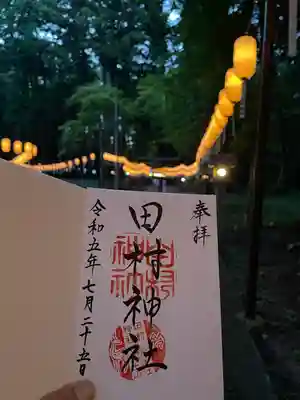 奉拝
田村神社
令和五年 七月二十五日